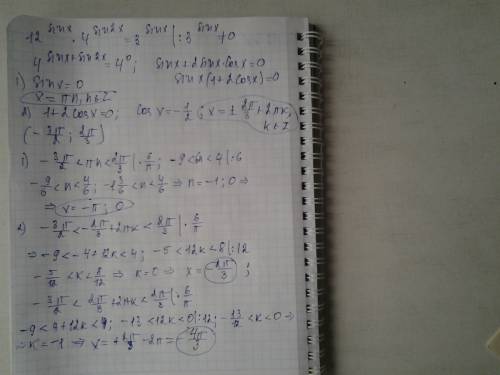 12^sinx · 4^sin2x = 3^sinx |: 3^sinx ≠ 0
4^sinx+sin2x = 4^0; sinx+2sinx·cosx=0
1) sinx=0 sinx(1+2cosx)=0
x=πn; n∈Z
2) 1+2cosx=0; cosx=-1/2; x=±2π/3+2πk, k∈Z
(-3π/2; 2π/3)
1) -3π/2<πn<2π/3 |·6/π; -9<6n<4 |:6
-9/6<n<4/6; -1 3/6<n<4/6 ⇒ n=-1; 0 ⇒
⇒ x=-π; 0
2) -3π/2<-2π/3+2πk<2π/3 |·6/π
⇒ -9<-4+12k<4; -5<12k<8 |:12
-5/12<k<8/12 ⇒ k=0 ⇒ x=-2π/3;
-3π/2<2π/3+2πk<2π/3 |·6/π
-9<4+12k<4; -13<12k<0 |:12; -13/12<k<0 ⇒
⇒ k=-1 ⇒ x=+2π/3-2π=-4π/3